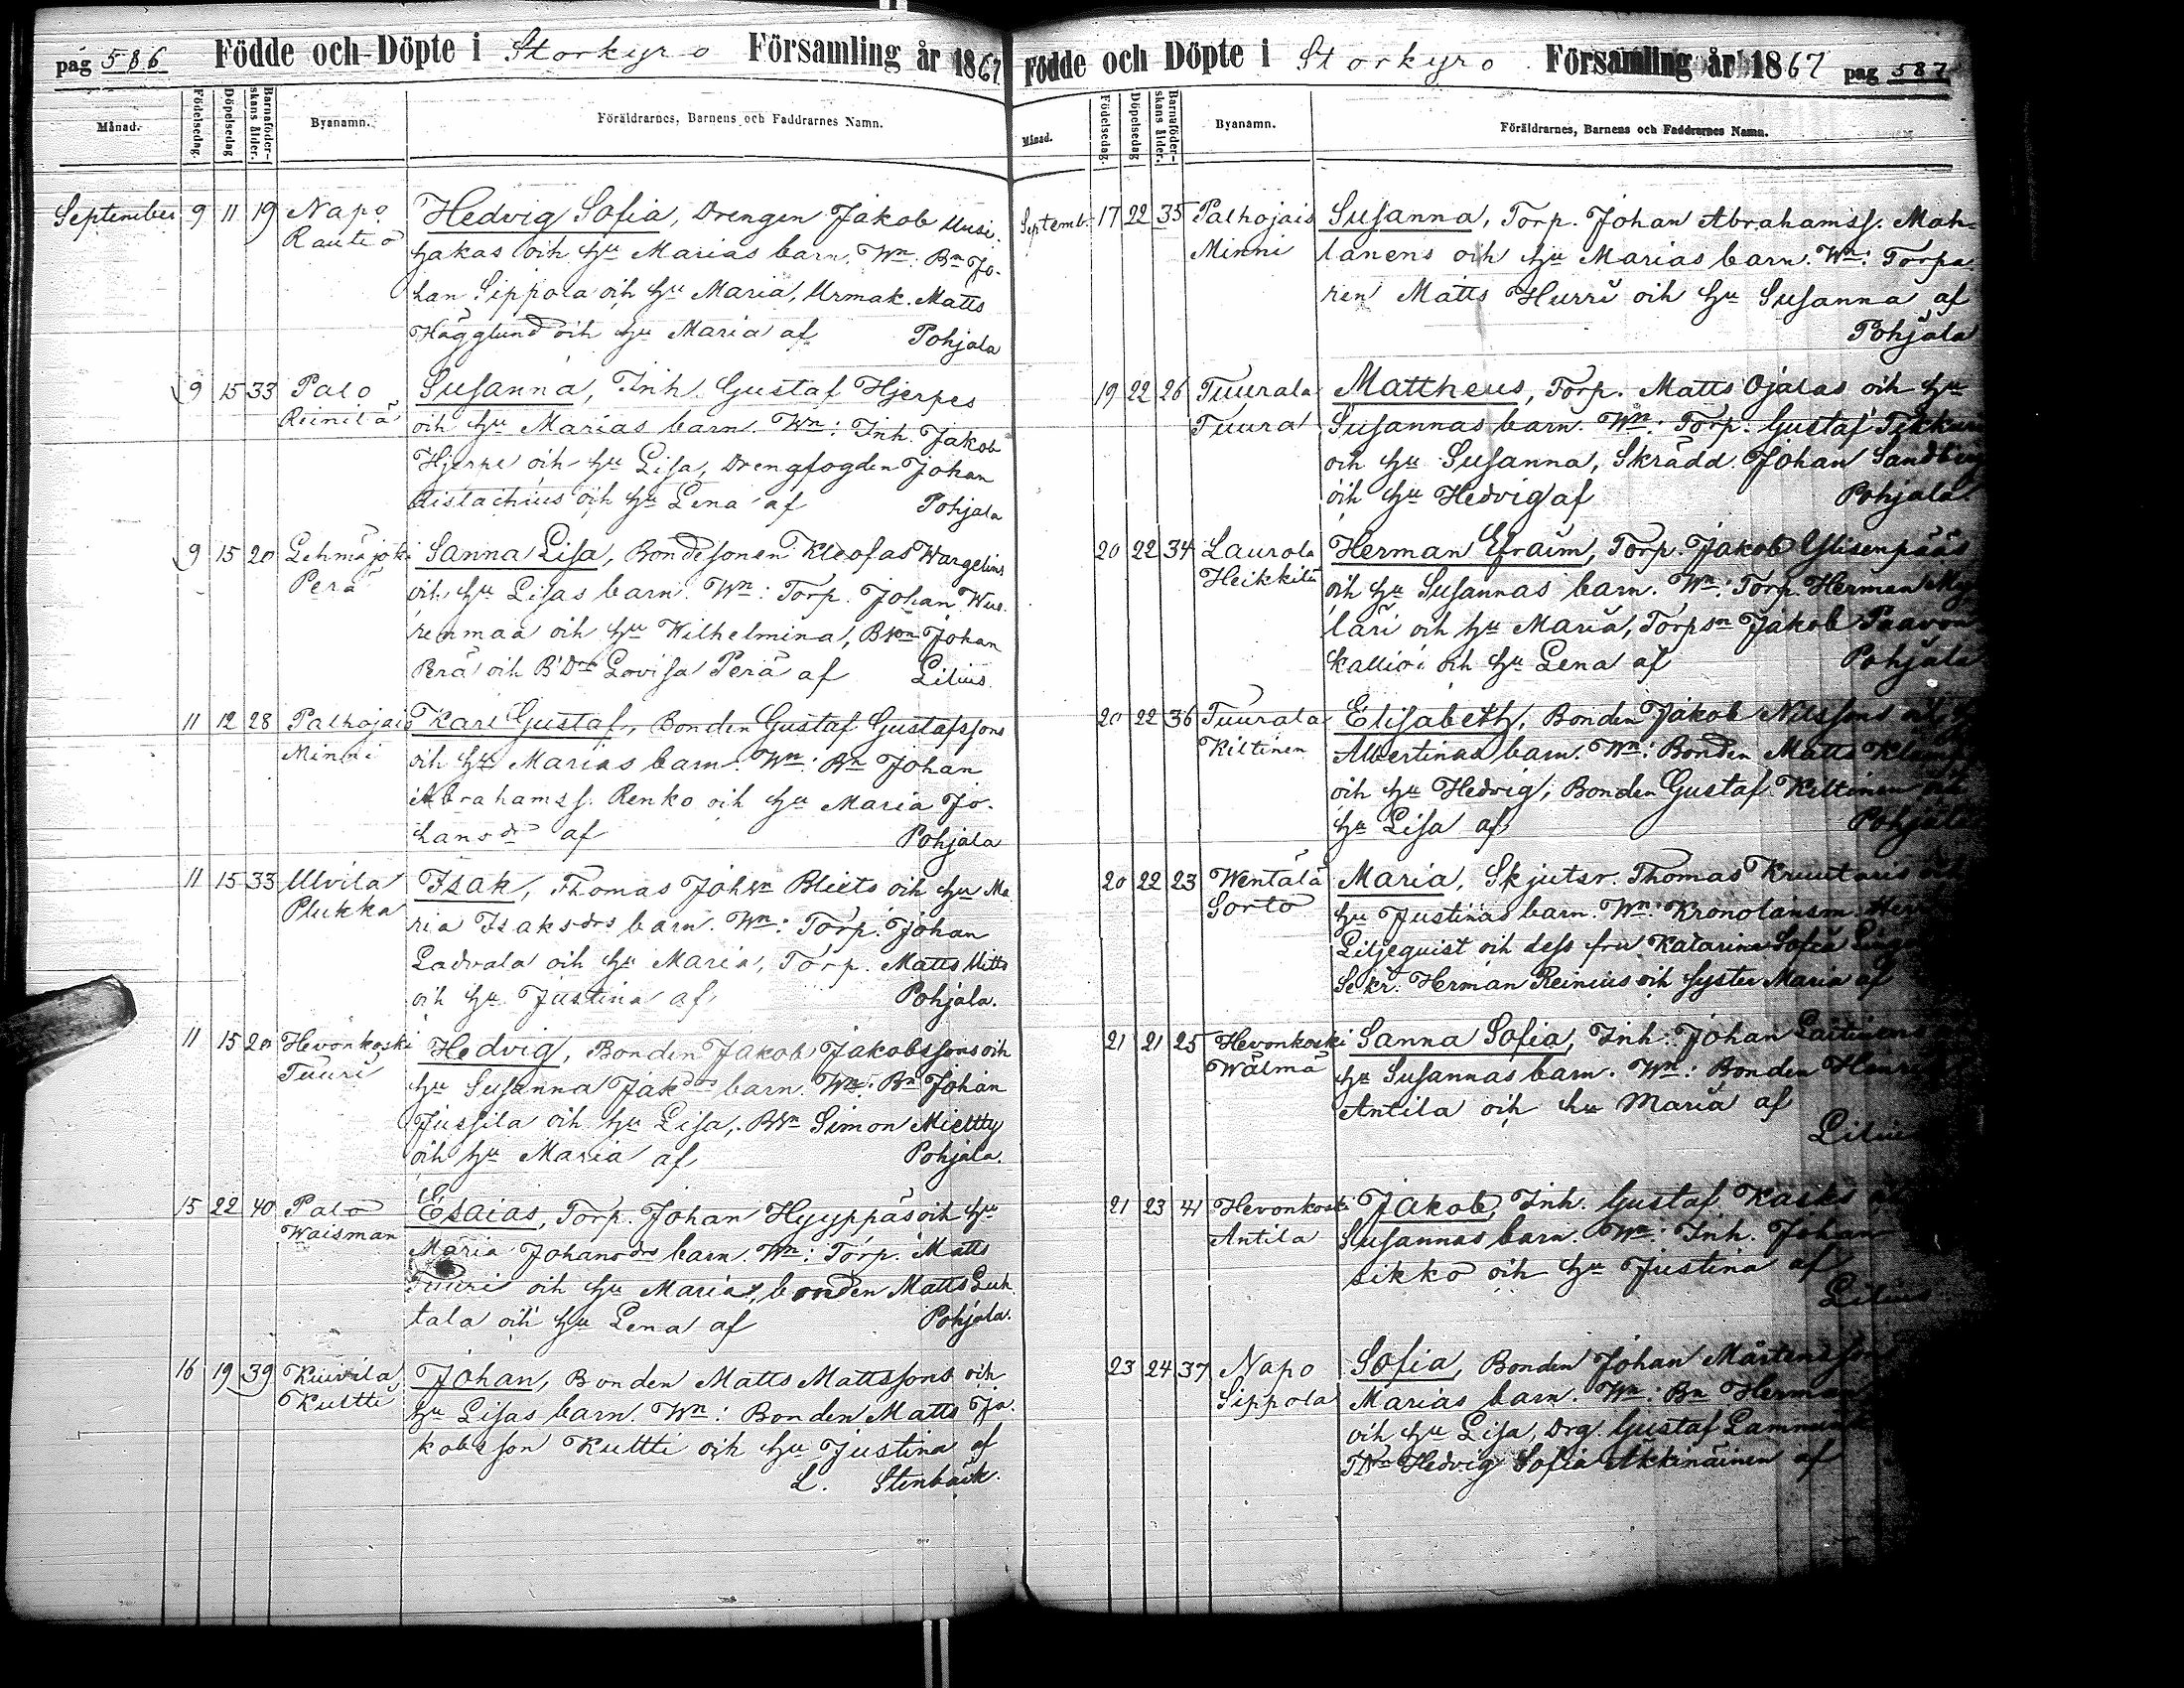 pag 586 Födde och Döpte i Storkyro Församling år 1867
Månad. Födelsedag. Döpelsedag Barnaföder-skans ålder. Byanamn. Föräldrarnes, Barnens och Faddrarnes Namn.
September 9 11 19 Napo Hedvig Sofia, Drengen Jakob Uusi
Rautio hakas och hu Marias barn. Wn: Bn Jo-
han Sippola och hu Maria, Urmak. Matts
Hägglund och hu Maria af Pohjala
9 15 33 Palo Susanna, Inh. Gustaf Hjerpes
Reinilä och hu Marias barn. Wn: Inh. Jakob
Hjerpe och hu Lisa, Drengfogden Johan
och hu Lena af Pohjala
9 15 20 Lehmäjoki Sanna Lisa, Bondesonen Kleofas Wargelins
Perä och hu Lisas barn. Wn: Torp. Johan Wuo
renmaa och hu Wilhelmina, Bson Johan
Perä och B'Dr Lovisa Perä af Lilius.
11 12 28 Palhojais Karl Gustaf, Bonden Gustaf Gustafssons
Minni och hu Marias barn. Wn: Bn Johan
Abrahamss. Renko och hu Maria Jo-
hansdr af Pohjala
11 15 33 Ulvila Isak, Thomas Johsn och hu Ma
Plukka ria Isaksdrs barn. Wn: Torp. Johan
Ladvala och hu Maria, Torp. Matts
och hu Justina af Pohjala.
11 15 20 Hevonkoski Hedvig, Bonden Jakob Jakobssons och
Tuuri hu Susanna Jakdrs barn. Wn: Bn Johan
Jussila och hu Lisa, Bn Simon Mieltty
och hu Maria af Pohjala.
15 22 40 Palo Esaias, Torp. Johan Hyyppäs och hu
Waisman Maria Johansdrs barn. Wn: Torp. Matts
Tuuri och hu Maria, bonden Matts Luh
tala och hu Lena af Pohjala.
16 19 39 Kuivila Johan, Bonden Matts Mattssons och
Kultti hu Lisas barn. Wn: Bonden Matts Ja
kobsson Kultti och hu Justina af
L. Stenbäck.
Födde och Döpte i Storkyro Församling år 1867 pag 587
Månad. Födelsedag. Döpelsedag Barnaföder-skans ålder. Byanamn. Föräldrarnes, Barnens och Faddrarnes Namn.
Septemb. 17 22 35 Palhojais Susanna, Torp. Johan Abrahamss. Mah-
Minni lanens och hu Marias barn. Wn: Torpa
ren Matts Hurri och hu Susanna af
Pohjala
19 22 26 Tuurala Mattheus, Torp. Matts Ojalas och hu
Tuura Susannas barn. Wn: Torp. Gustaf
och hu Susanna, Skrädd. Johan
och hu Hedvig af Pohjala
20 22 34 Laurola Herman Efraim, Torp. Jakob Ylisenpääs
Heikkilä och hu Susannas barn. Wn: Torp. Herman Myl
läri och hu Maria, Torpsn Jakob Paavon
kallio och hu Lena af Pohjala
20 22 36 Tuurala Elisabeth, Bonden Jakob Nilssons
Kiltinen Albertinas barn. Wn: Bonden Matts
och hu Hedvig, Bonden Gustaf Kiltinen och
hu Lisa af Pohjala
20 22 23 Wentälä Maria, Skjutsr. Thomas
Sorto hu Justinas barn. Wn: Kronolänsm.
Liljequist och dess fru Katarina Sofia
Sekr. Herman Reinius och syster Maria af
21 21 25 Hevonkoski Sanna Sofia, Inh. Johan
Wälmä hu Susannas barn. Wn: Bonden
Antila och hu Maria af
Lilius
21 23 41 Hevonkoski Jakob, Inh. Gustaf Kasks
Antila Susannas barn. Wn: Inh. Johan
sikko och hu Justina af
Lilius
23 24 37 Napo Sofia, Bonden Johan Mårtens
Sippola Marias barn. Wn: Bn Herman
och hu Lisa, Drg. Gustaf
Hedvig Sofia Akkinäinen af